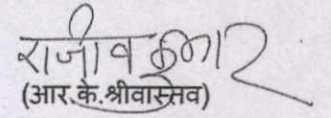 राजीव कुमार
(आर.के.श्रीवास्तव)